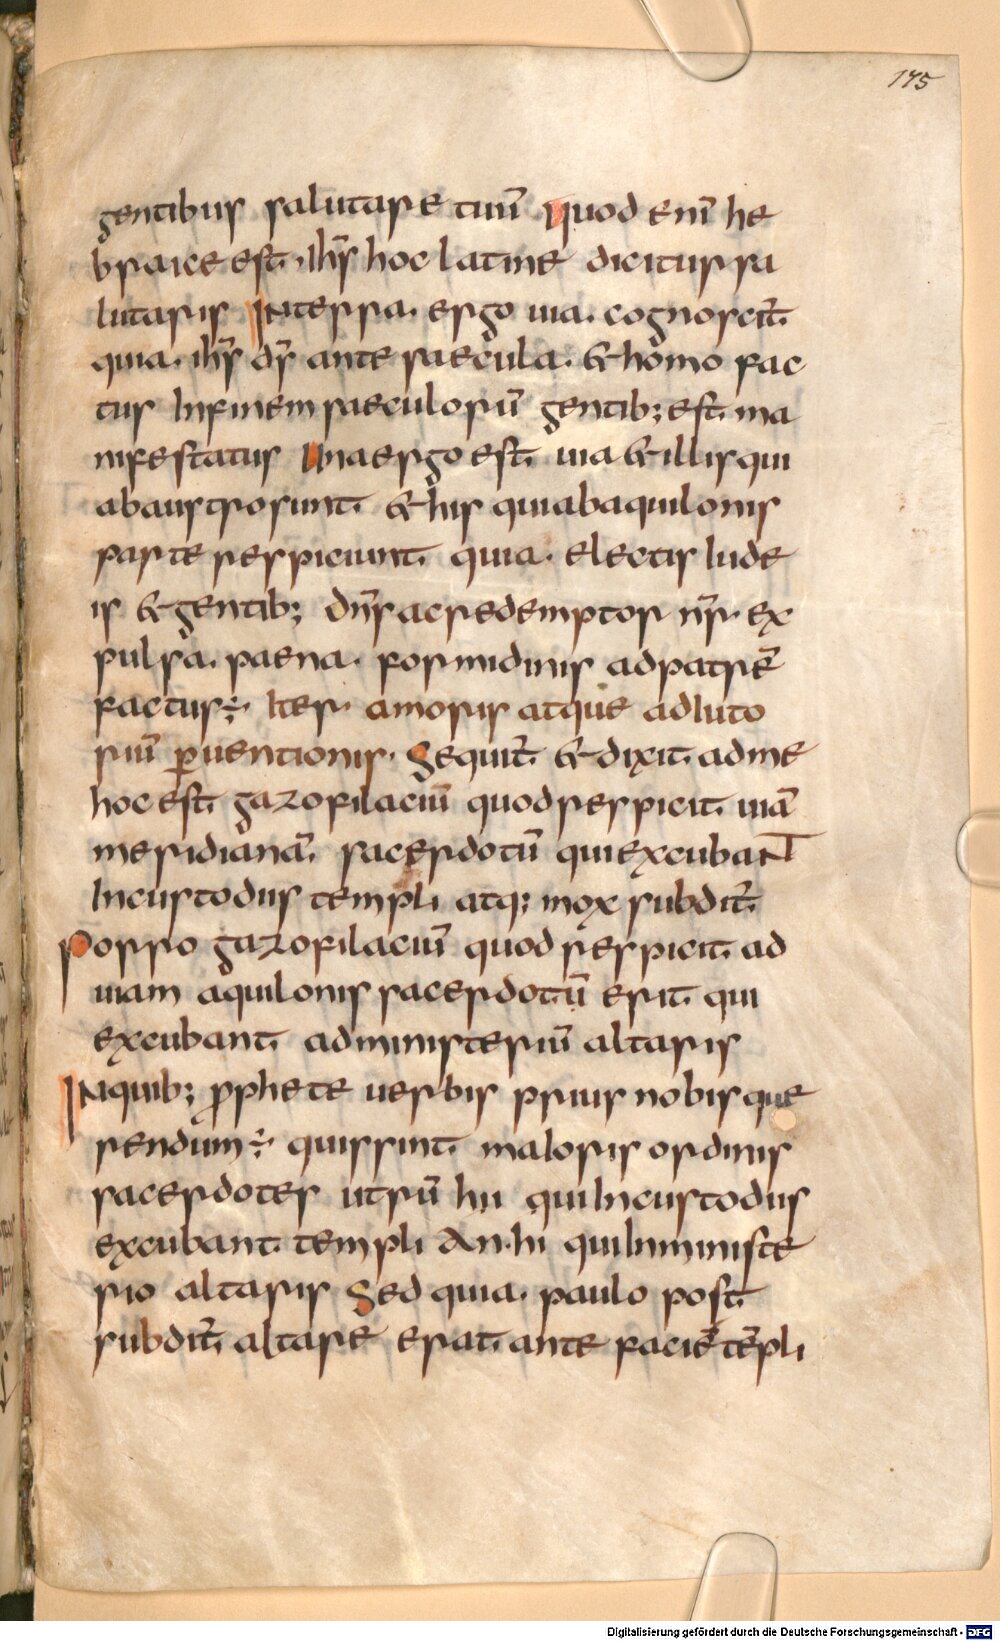 175
gentibus salutare tuū Quod enī he
braice est· ihs̄ hoc latine dicitur sa
lutaris INterra· ergo uia· cognoscit̄
quia· ihs̄ ds̄ ante saecula· & homo fac
tus Infinem saeculorū gentib; est· ma
nifestatus Una ergo est· uia & illis qui
ab austro sunt· & his qui ab aquilonis
parte respiciunt· quia· electis Iude
is & gentib; dn̄s ac redemptor nr̄· ex
pulsa· paena· formidinis ad patrē
factus÷ Iter· amoris atque adIuto
riū ꝑuentionis· Sequit̄ & dixit ad me
hoc est· gazofilaciū quod respicit uiā
meridianā· sacerdotū qui excubaNT
In custodiis templi atq; mox subdit̄
Porro gazofilaciū quod respicit ad
uiam aquilonis sacerdotū erit qui
excubant· ad ministeriū altaris
INquib; ꝓphete uerbis prius nobis que
rendum÷ qui sint· maioris ordinis
sacerdotes utrū hii qui In custodiis
excubant templi An· hi qui In ministe
rio altaris Sed quia· paulo post
subdit̄ altare erat ante faciē tēpli
Digitalisierung gefördert durch die Deutsche Forschungsgemeinschaft - DFG